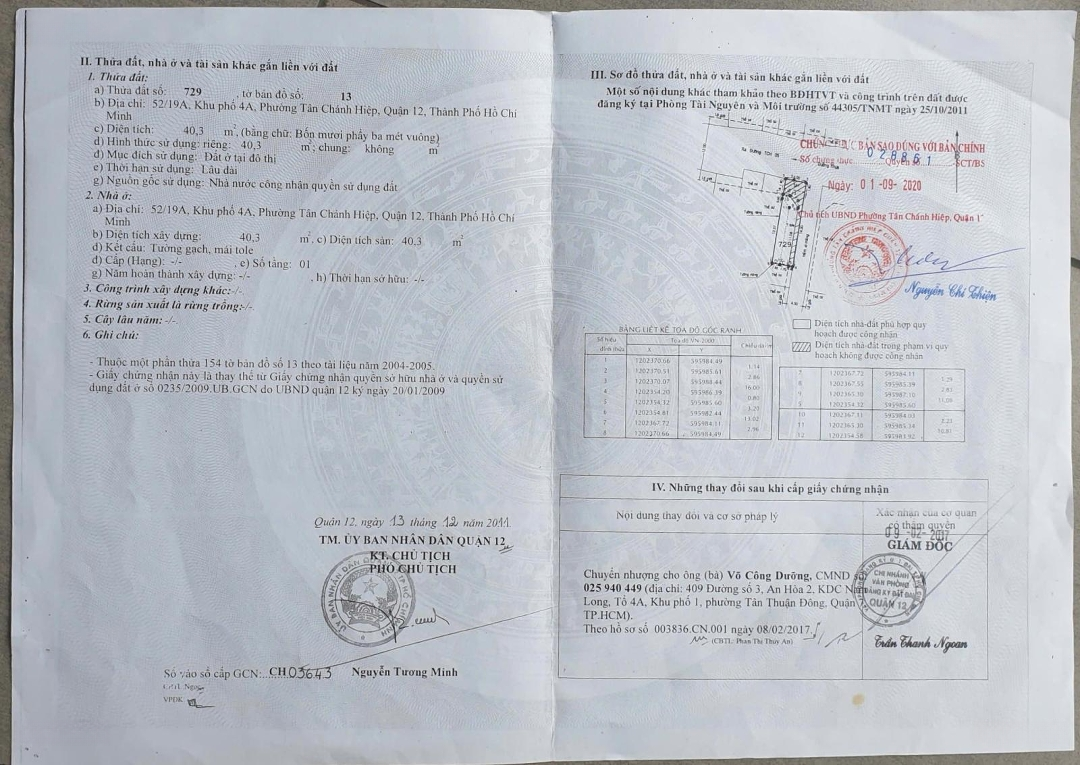 II. Thửa đất, nhà ở và tài sản khác gắn liền với đất
1. Thửa đất:
a) Thửa đất số: 729 , tờ bản đồ số: 13
b) Địa chỉ: 52/19A, Khu phố 4A, Phường Tân Chánh Hiệp, Quận 12, Thành Phố Hồ Chí
Minh
c) Diện tích: 40,3 m², (bằng chữ: Bốn mươi phẩy ba mét vuông)
d) Hình thức sử dụng: riêng: 40,3 m²; chung: không m²
đ) Mục đích sử dụng: Đất ở tại đô thị
e) Thời hạn sử dụng: Lâu dài
g) Nguồn gốc sử dụng: Nhà nước công nhận quyền sử dụng đất
2. Nhà ở:
a) Địa chỉ: 52/19A, Khu phố 4A, Phường Tân Chánh Hiệp, Quận 12, Thành Phố Hồ Chí
Minh
b) Diện tích xây dựng: 40,3 m², c) Diện tích sàn: 40,3 m²
d) Kết cấu: Tường gạch, mái tole
đ) Cấp (Hạng): -/- , e) Số tầng: 01
g) Năm hoàn thành xây dựng: -/- , h) Thời hạn sở hữu: -/-
3. Công trình xây dựng khác:-/-
4. Rừng sản xuất là rừng trồng:-/-
5. Cây lâu năm: -/-
6. Ghi chú:
- Thuộc một phần thửa 154 tờ bản đồ số 13 theo tài liệu năm 2004-2005.
- Giấy chứng nhận này là thay thế từ Giấy chứng nhận quyền sở hữu nhà ở và quyền sử
dụng đất ở số 0235/2009.UB.GCN do UBND quận 12 ký ngày 20/01/2009
Quận 12, ngày 13 tháng 12 năm 2011
TM. ỦY BAN NHÂN DÂN QUẬN 12
KT. CHỦ TỊCH
PHÓ CHỦ TỊCH
Nguyễn Tương Minh
Số vào sổ cấp GCN:...CH03643
VPĐK
III. Sơ đồ thửa đất, nhà ở và tài sản khác gắn liền với đất
Một số nội dung khác tham khảo theo BĐHTVT và công trình trên đất được
đăng ký tại Phòng Tài Nguyên và Môi trường số 44305/TNMT ngày 25/10/2011
CHỨNG THỰC BẢN SAO ĐÚNG VỚI BẢN CHÍNH
Số chứng thực 028861 Quyển số SCT/BS
Ngày: 01-09-2020
Chủ tịch UBND Phường Tân Chánh Hiệp, Quận 1
729
Nguyễn Chí Thiện
Diện tích nhà-đất phù hợp quy
hoạch được công nhận
Diện tích nhà-đất trong phạm vi quy
hoạch không được công nhận
BẢNG LIỆT KÊ TỌA ĐỘ GÓC RANH
Số hiệu
Tọa độ VN-2000
1202370.66 595984.49
1202370.51 595985.61
1202370.07 595988.44
7 1202367.72 595984.11
11 1202365.30 595985.34
IV. Những thay đổi sau khi cấp giấy chứng nhận
Nội dung thay đổi và cơ sở pháp lý
Xác nhận của cơ quan
có thẩm quyền
09-02-2017
GIÁM ĐỐC
CHI NHÁNH
VĂN PHÒNG
ĐĂNG KÝ ĐẤT ĐAI
QUẬN 12
Trần Thanh Ngoan
Chuyển nhượng cho ông (bà) Võ Công Dưỡng, CMND
025 940 449 (địa chỉ: 409 Đường số 3, An Hòa 2, KDC
Long, Tổ 4A, Khu phố 1, phường Tân Thuận Đông, Quận
TP.HCM).
Theo hồ sơ số 003836.CN.001 ngày 08/02/2017.
(CBTL: Phan Thị Thúy An)